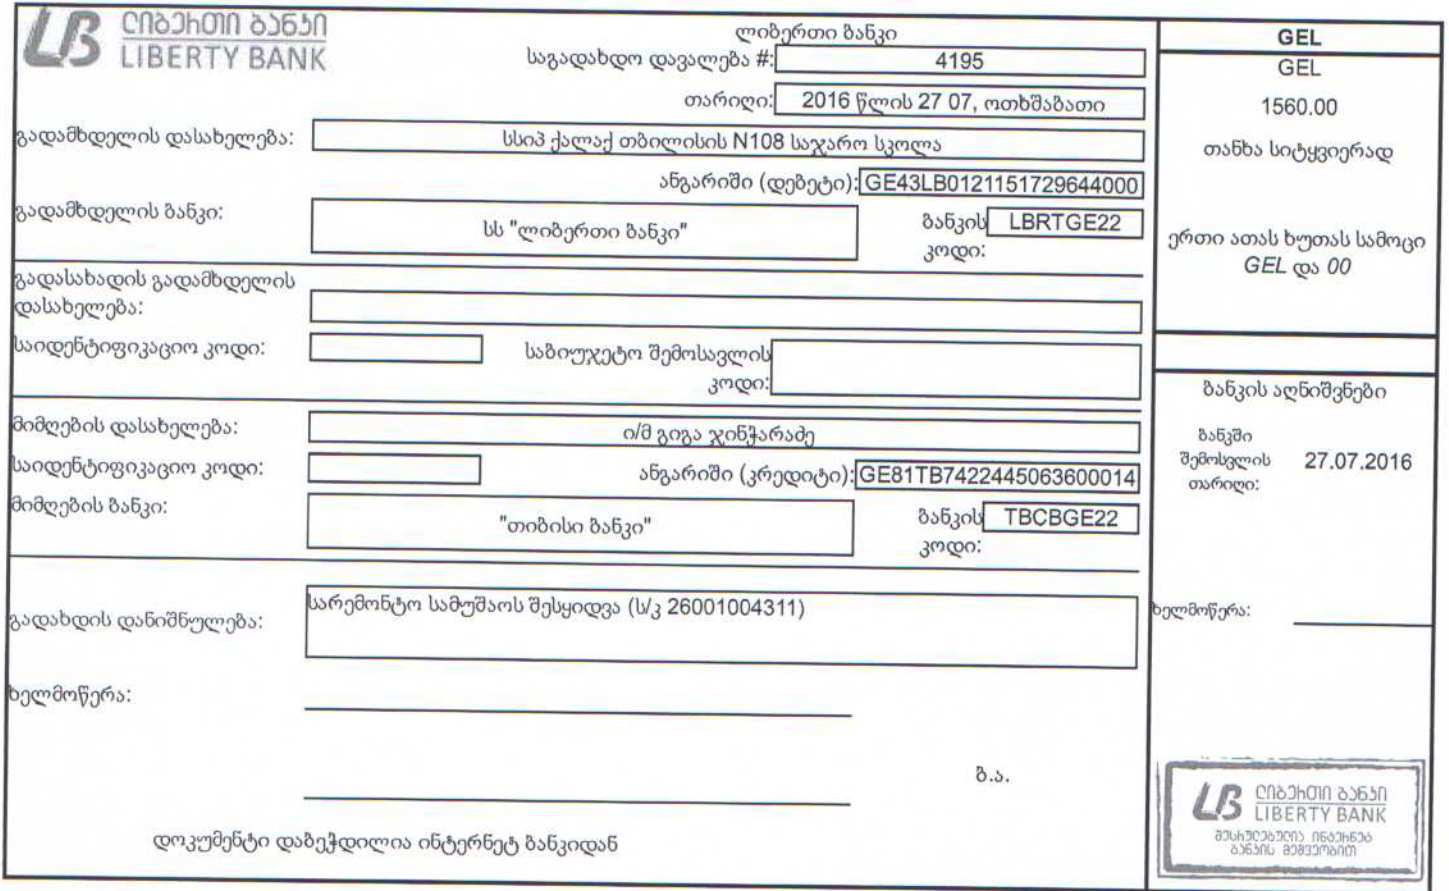 ლიბერთი ბანკი
LIBERTY BANK
ლიბერთი ბანკი
საგადახდო დავალება #: 4195
თარიღი: 2016 წლის 27 07, ოთხშაბათი
გადამხდელის დასახელება: სსიპ ქალაქ თბილისის N108 საჯარო სკოლა
ანგარიში (დებეტი): GE43LB0121151729644000
გადამხდელის ბანკი: სს "ლიბერთი ბანკი" ბანკის კოდი: LBRTGE22
გადასახადის გადამხდელის
დასახელება:
საიდენტიფიკაციო კოდი: საბიუჯეტო შემოსავლის
კოდი:
მიმღების დასახელება: ი/მ გიგა ჯინჭარაძე
საიდენტიფიკაციო კოდი: ანგარიში (კრედიტი): GE81TB7422445063600014
მიმღების ბანკი: "თიბისი ბანკი" ბანკის კოდი: TBCBGE22
გადახდის დანიშნულება: სარემონტო სამუშაოს შესყიდვა (ს/კ 26001004311)
ხელმოწერა:
ბ.ა.
დოკუმენტი დაბეჭდილია ინტერნეტ ბანკიდან
GEL
GEL
1560.00
თანხა სიტყვიერად
ერთი ათას ხუთას სამოცი
GEL და 00
ბანკის აღნიშვნები
ბანკში
შემოსვლის 27.07.2016
თარიღი:
ხელმოწერა:
ლიბერთი ბანკი
LIBERTY BANK
შესრულებულია ინტერნეტ
ბანკის მეშვეობით